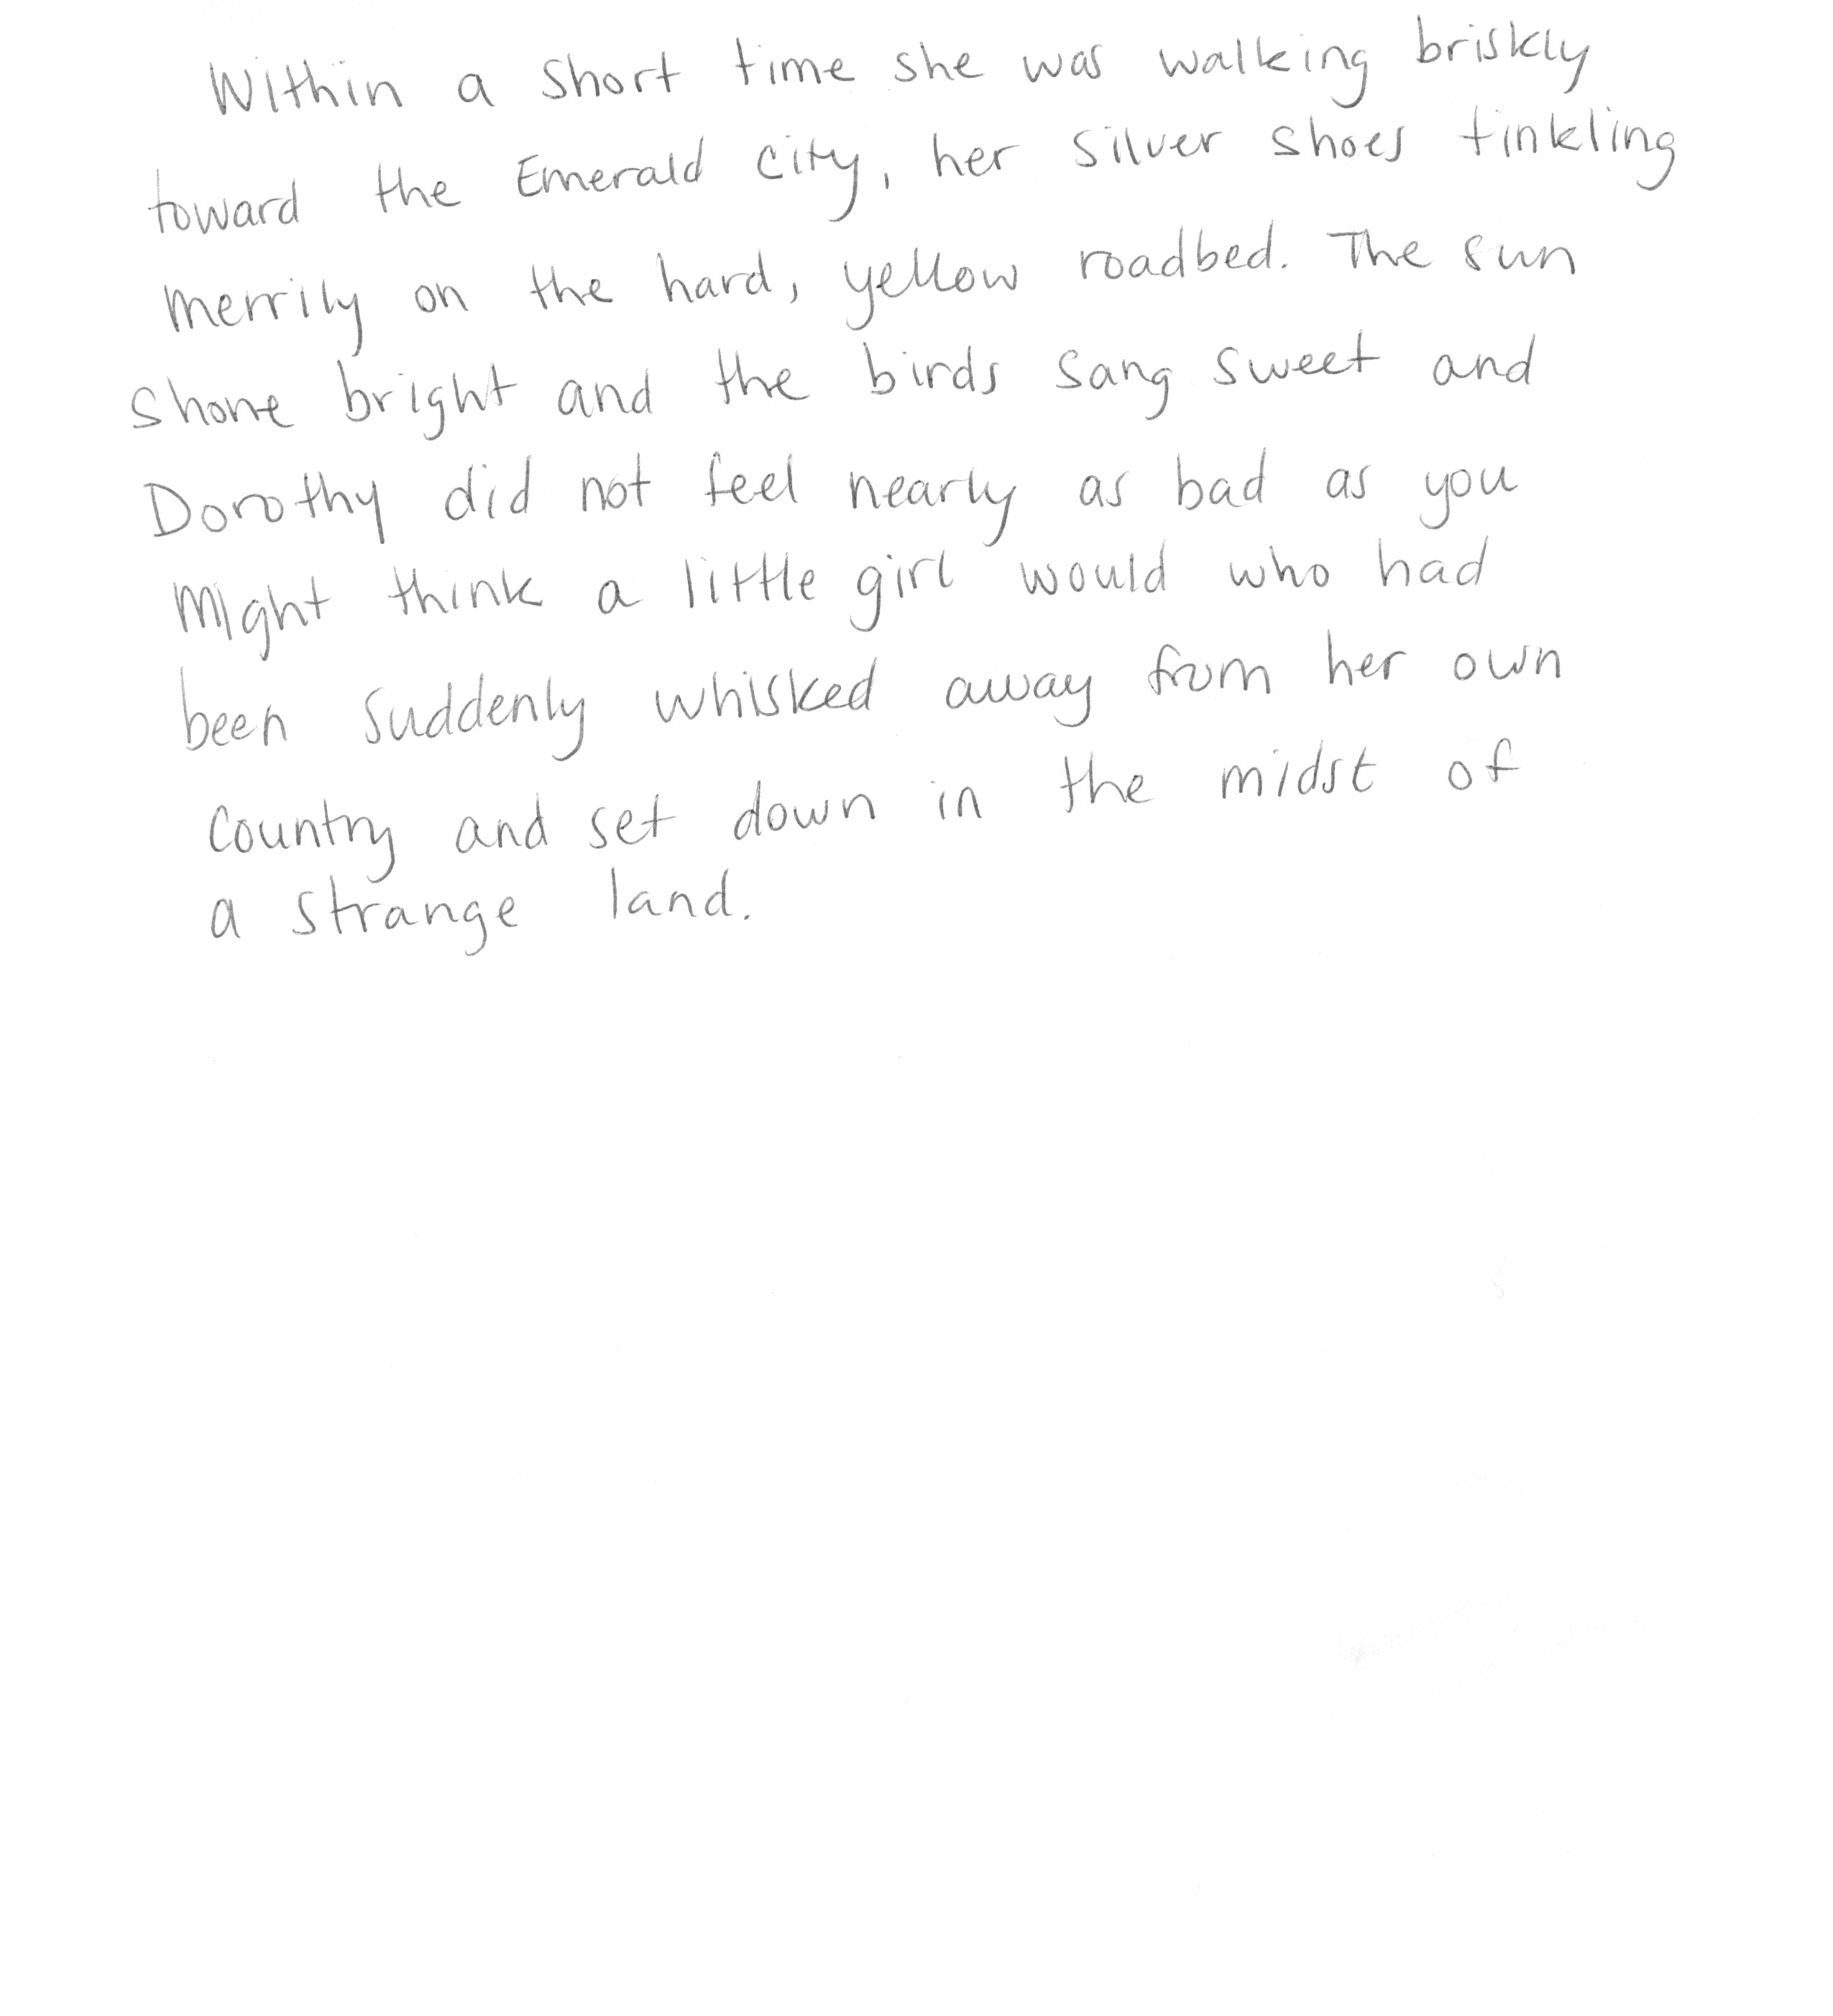 Within a short time she was walking briskly
toward the Emerald city, her silver shoes tinkling
merrily on the hard, yellow roadbed. The sun
shone bright and the birds sang sweet and
Dorothy did not feel nearly as bad as you
might think a little girl would who had
been suddenly whisked away from her own
country and set down in the midst of
a strange land.